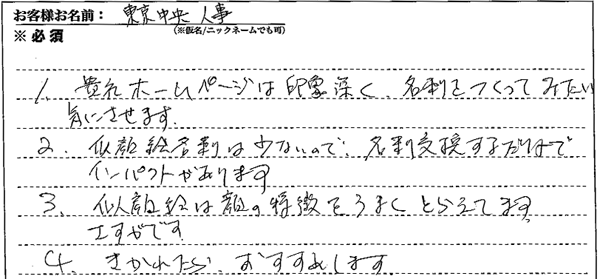 お客様お名前： 東京中央 人事
※必須 (※仮名/ニックネームでも可)
1. 貴社ホームページは印象深く、名刺をつくってみたい
気にさせます.
2. 似顔絵名刺は少ないので、名刺交換するだけで
インパクトがあります
3. 似顔絵は顔の特徴をうまくとらえてます
さすがです
4. きかれたら、おすすめします